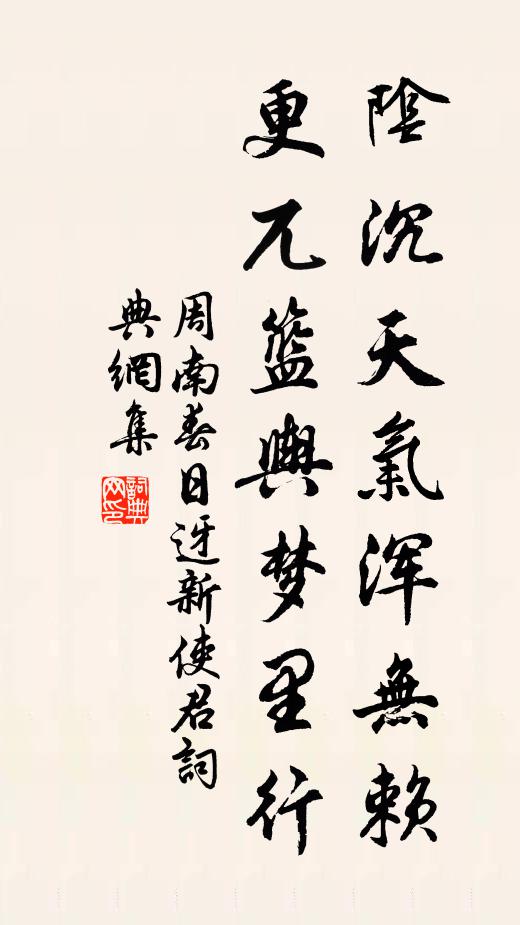 陰沉天氣浑無賴
更兀籃輿梦里行
周南春日迓新使君詞
典網集
詞典网印